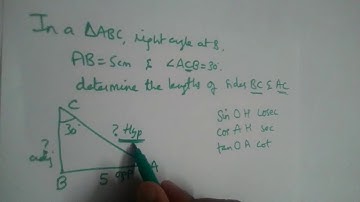 In a △ABC, right angle at B.
AB = 5cm & ∠ACB = 30°.
determine the lengths of sides BC & AC
C
30°
? Hyp
?
adj
B
5 opp
A
Sin O H Cosec
Cos A H sec
tan O A cot